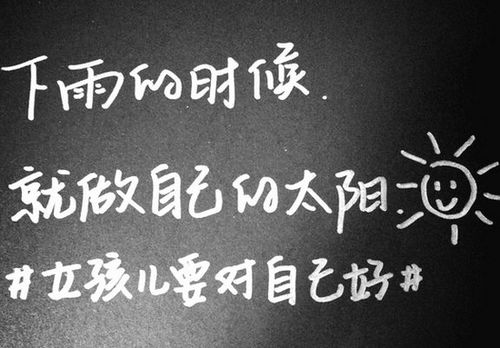 下雨的时候.
就做自己的太阳.
#女孩儿要对自己好#